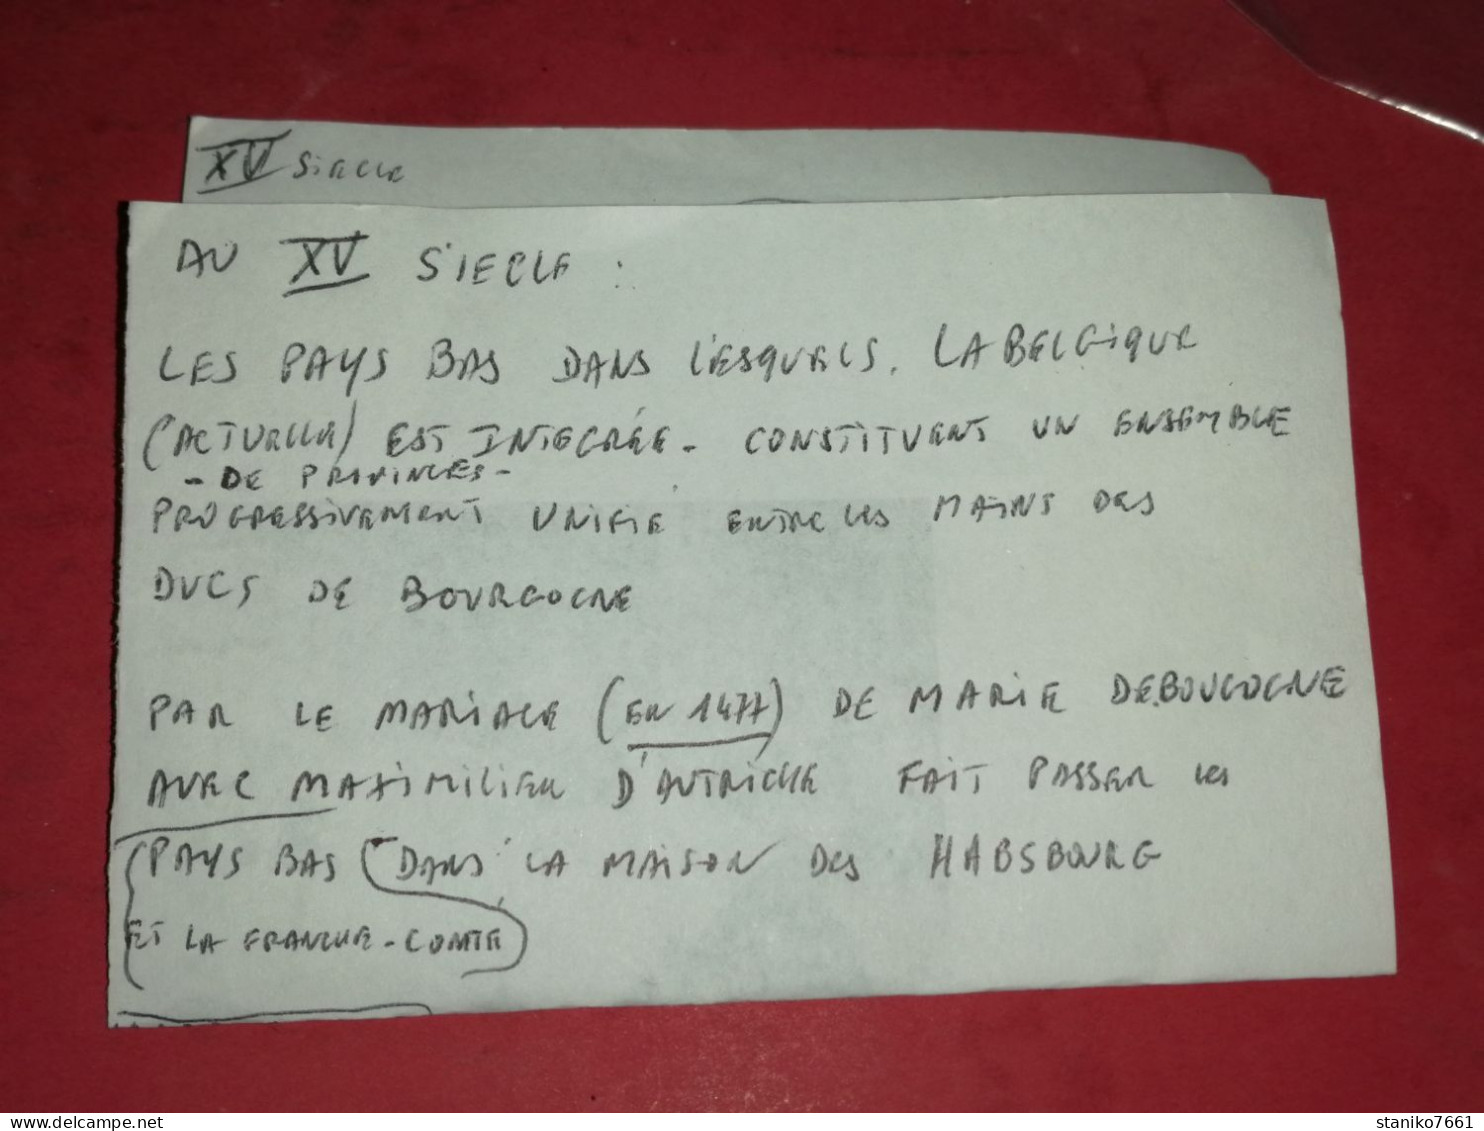 XV SiECLE
AU XV SIECLE :
LES PAYS BAS DANS L'ESQUELS. LA BELGiQUE
(ACTUELLE) EST INTEGRÉE - CONSTITUENT UN ENSEMBLE
- DE PROVINCES -
PROGRESSIVEMENT UNIFIÉ ENTRE LES MAINS DES
DUCS DE BOURGOGNE
PAR LE MARIAGE (EN 1477) DE MARIE DE BOUGOGNE
AVEC MAXIMILIEN D'AUTRICHE FAIT PASSER LES
PAYS BAS (DANS LA MAISON DES HABSBOURG
ET LA FRANCHE-COMTÉ)
delcampe.net
staniko7661